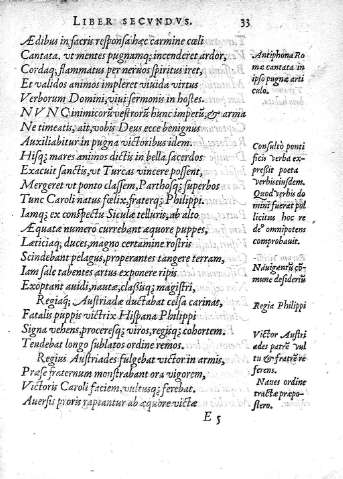 LIBER SECVNDVS. 33
Ædibus in sacris responsa hæc carmine cœli
Cantata, vt mentes pugnamq; incenderet ardor,
Cordaq; flammatus per neruos spiritus iret,
Et validos animos impleret viuida virtus
Verborum Domini, viui sermonis in hostes.
NVNC inimicorũ vestrorũ hunc impetũ, & arma
Ne timeatis, ait, vobis Deus ecce benignus
Auxiliabitur in pugna victoribus idem.
Hisq; mares animos dictis in bella sacerdos
Exacuit sanctis, vt Turcas vincere possent,
Mergeret vt ponto classem, Parthosq; superbos
Tunc Caroli natus fœlix, fraterq; Philippi.
Iamq; ex conspectu Siculæ telluris, ab alto
Æquate numero currebant æquore puppes,
Lætitiaq; duces, magno certamine rostris
Scindebant pelagus, properantes tangere terram,
Iam sale tabentes artus exponere ripis
Exoptant auidi, nautæ, classiuq; magistri,
Regiaq; Austriadæ ductabat celsa carinas,
Fatalis puppis victrix Hispana Philippi
Signa vehens, proceresq; viros, regisq; cohortem.
Teudebat longo sublatos ordine remos.
Regius Austriades fulgebat victor in armis,
Præse fraternum monstrabant ora vigorem,
Victoris Caroli faciem, vultusq; ferebat.
Auersis proris raptantur ab æquore victæ
E 5
Antiphona Ro
mæ cantata in
ipso pugnæ arti
culo.
Consultò ponti
ficis verba ex-
pressit poeta
verbis eiusdem.
Quod verbis do
mini fuerat pol
licitus hoc re
do omnipotens
comprobauit.
Nauigantiũ cõ-
mune desideriũ
Regia Philippi
Victor Austri
ades patrũ vul
tu & fratrẽ re
ferens.
Naues ordine
tractæ præpo-
stero.